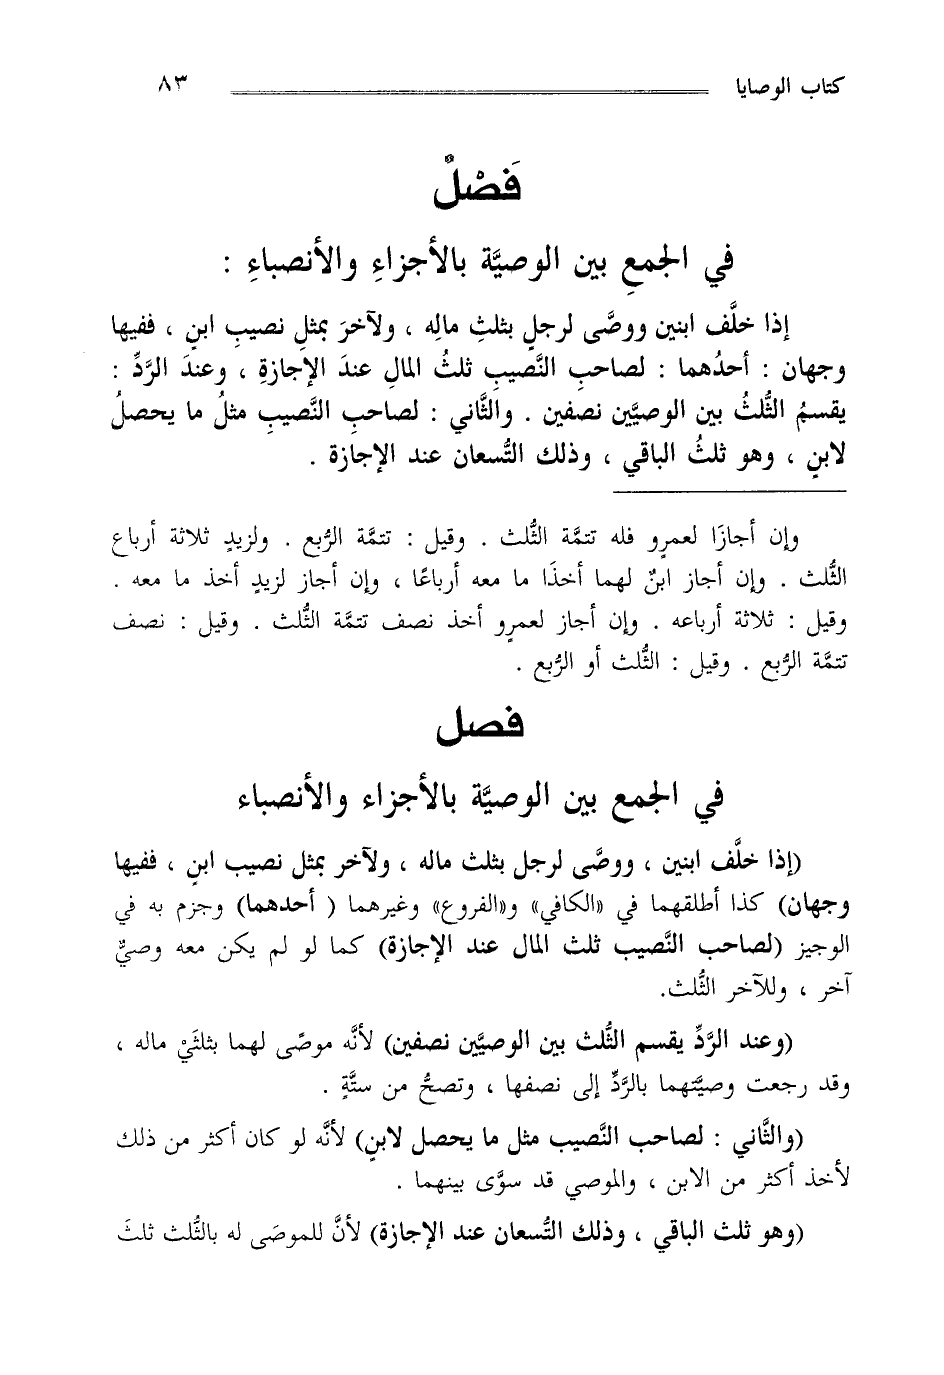 كتاب الوصايا ٨٣
فَصْلٌ
في الجمعِ بين الوصيَّة بالأجزاءِ والأنصباءِ :
إذا خلَّف ابنين ووصَّى لرجلٍ بثلثِ مالِه ، ولآخرَ بمثلِ نصيبِ ابنٍ ، ففيها
وجهان : أحدُهما : لصاحبِ النَّصيبِ ثلثُ المالِ عندَ الإجازةِ ، وعندَ الرَّدِّ :
يقسمُ الثُّلثُ بين الوصيَّين نصفين . والثَّاني : لصاحبِ النَّصيبِ مثلُ ما يحصلُ
لابنٍ ، وهو ثلثُ الباقي ، وذلك التُّسعان عند الإجازة .
وإن أجازَا لعمرٍو فله تتمَّة الثُّلث . وقيل : تتمَّة الرُّبع . ولزيدٍ ثلاثة أرباع
الثُّلث . وإن أجاز ابنٌ لهما أخذَا ما معه أرباعًا ، وإن أجاز لزيدٍ أخذ ما معه .
وقيل : ثلاثة أرباعه . وإن أجاز لعمرٍو أخذ نصف تتمَّة الثُّلث . وقيل : نصف
تتمَّة الرُّبع . وقيل : الثُّلث أو الرُّبع .
فصل
في الجمع بين الوصيَّة بالأجزاء والأنصباء
(إذا خلَّف ابنين ، ووصَّى لرجل بثلث ماله ، ولآخر بمثل نصيب ابنٍ ، ففيها
وجهان) كذا أطلقهما في «الكافي» و«الفروع» وغيرهما ( أحدهما) وجزم به في
الوجيز (لصاحب النَّصيب ثلث المال عند الإجازة) كما لو لم يكن معه وصيٌّ
آخر ، وللآخر الثُّلث.
(وعند الرَّدِّ يقسم الثُّلث بين الوصيَّين نصفين) لأنَّه موصًى لهما بثلثَيْ ماله ،
وقد رجعت وصيَّتهما بالرَّدِّ إلى نصفها ، وتصحُّ من ستَّةٍ .
(والثَّاني : لصاحب النَّصيب مثل ما يحصل لابنٍ) لأنَّه لو كان أكثر من ذلك
لأخذ أكثر من الابن ، والموصي قد سوَّى بينهما .
(وهو ثلث الباقي ، وذلك التُّسعان عند الإجازة) لأنَّ للموصَى له بالثُّلث ثلثَ